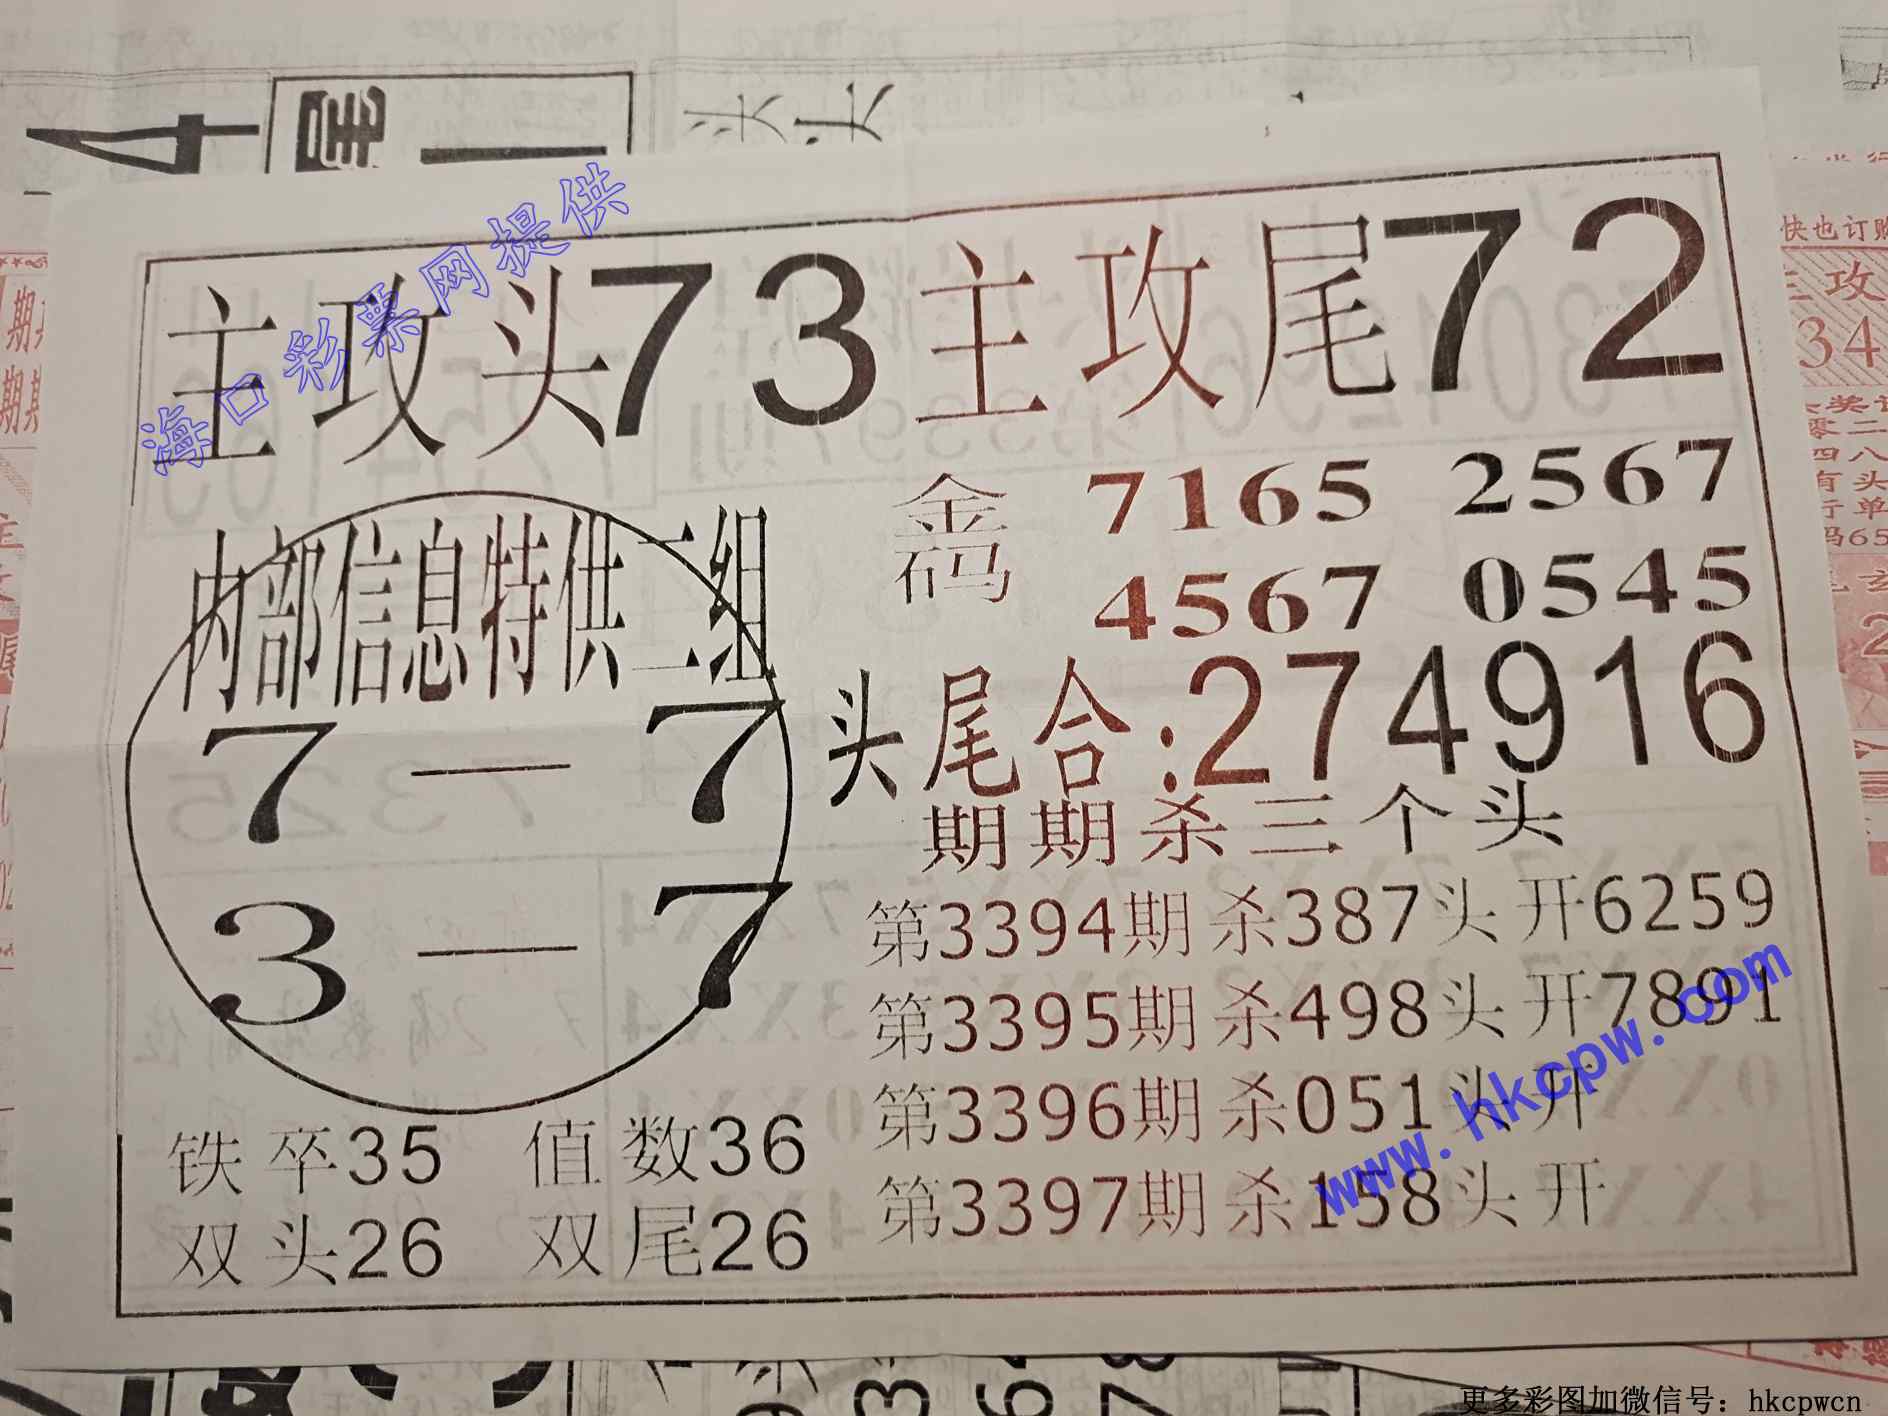 主攻头73 主攻尾72
海口彩票网提供
内部信息特供二组
7—7
3—7
铁卒35 值数36
双头26 双尾26
金码 7165 2567
4567 0545
头尾合:274916
期期杀三个头
第3394期杀387头开6259
第3395期杀498头开7891
第3396期杀051头开
第3397期杀158头开
www.hkcpw.com
快也订购
主攻
34
更多彩图加微信号：hkcpwcn